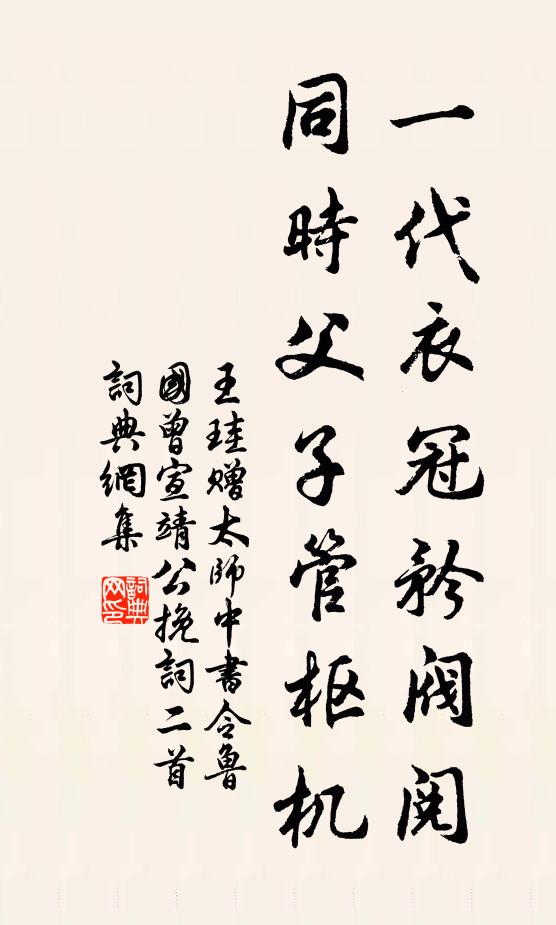 一代衣冠矜阀阅
同時父子管枢机
王珪贈太師中書令魯
國曾宣靖公挽詞二首
詞典網集
詞典网印